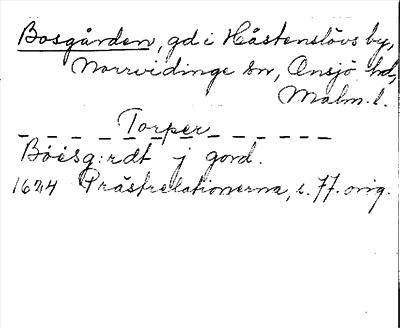 Bosgården, gd i Håstenslövs by,
Norrvidinge sn, Onsjö hd,
Malm. l.
Torper
Bóésg:rdt j gord.
1624 Prästrelationerna, s. 77. orig.